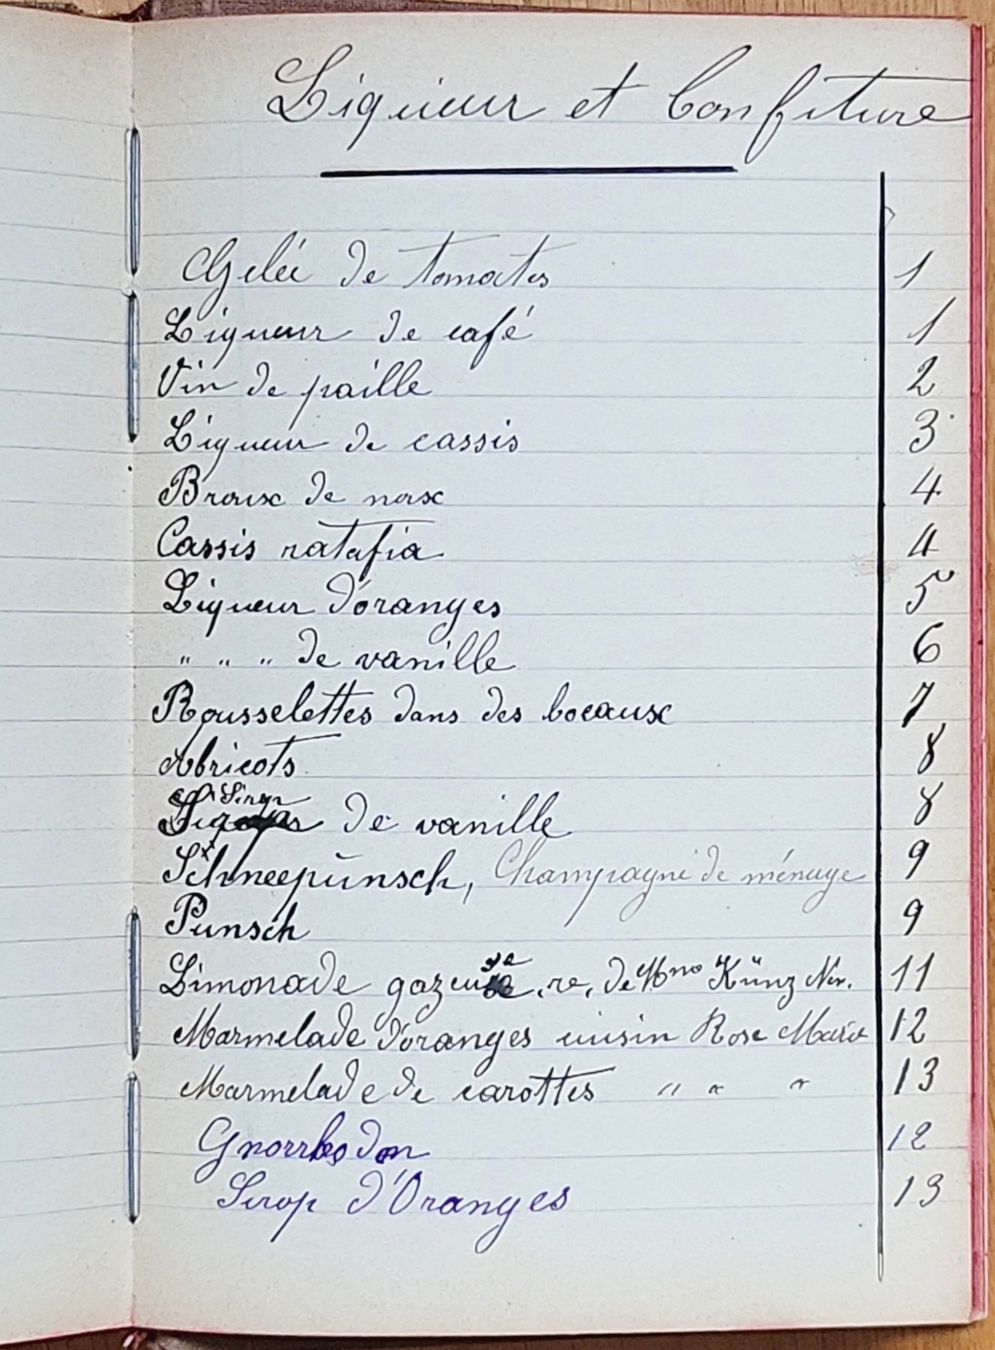 Liqueur et Confiture
Gelée de tomates 1
Liqueur de café 1
Vin de paille 2
Liqueur de cassis 3
Broux de noix 4
Cassis ratafia 4
Liqueur d'oranges 5
" " " de vanille 6
Rousselettes dans des bocaux 7
Abricots 8
Sirop de vanille 8
Schneepunsch, Champagne de ménage 9
Punsch 9
Limonade gazeuse, re, de Mme Künz 11
Marmelade d'oranges cuisin Rose Marie 12
Marmelade de carottes " " " 13
12
Sirop d'Oranges 13